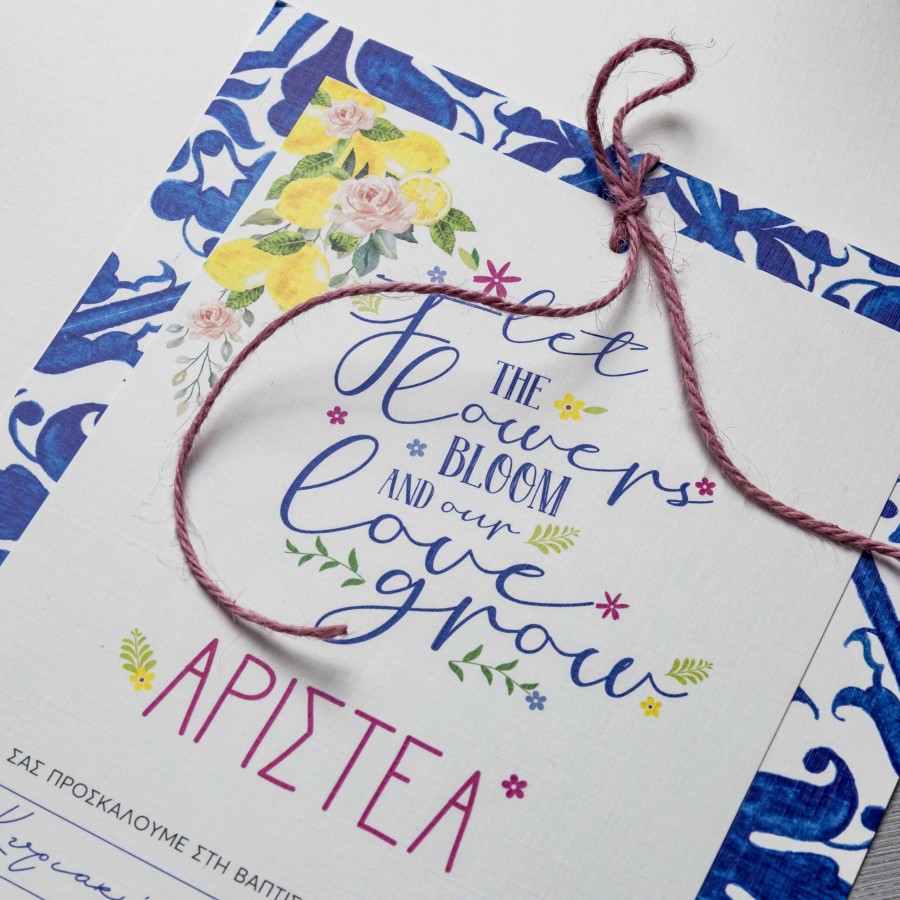 let
THE
flowers
BLOOM
AND our
love
grow
ΑΡΙΣΤΕΑ
ΣΑΣ ΠΡΟΣΚΑΛΟΥΜΕ ΣΤΗ ΒΑΠΤΙΣ
Κυριακ